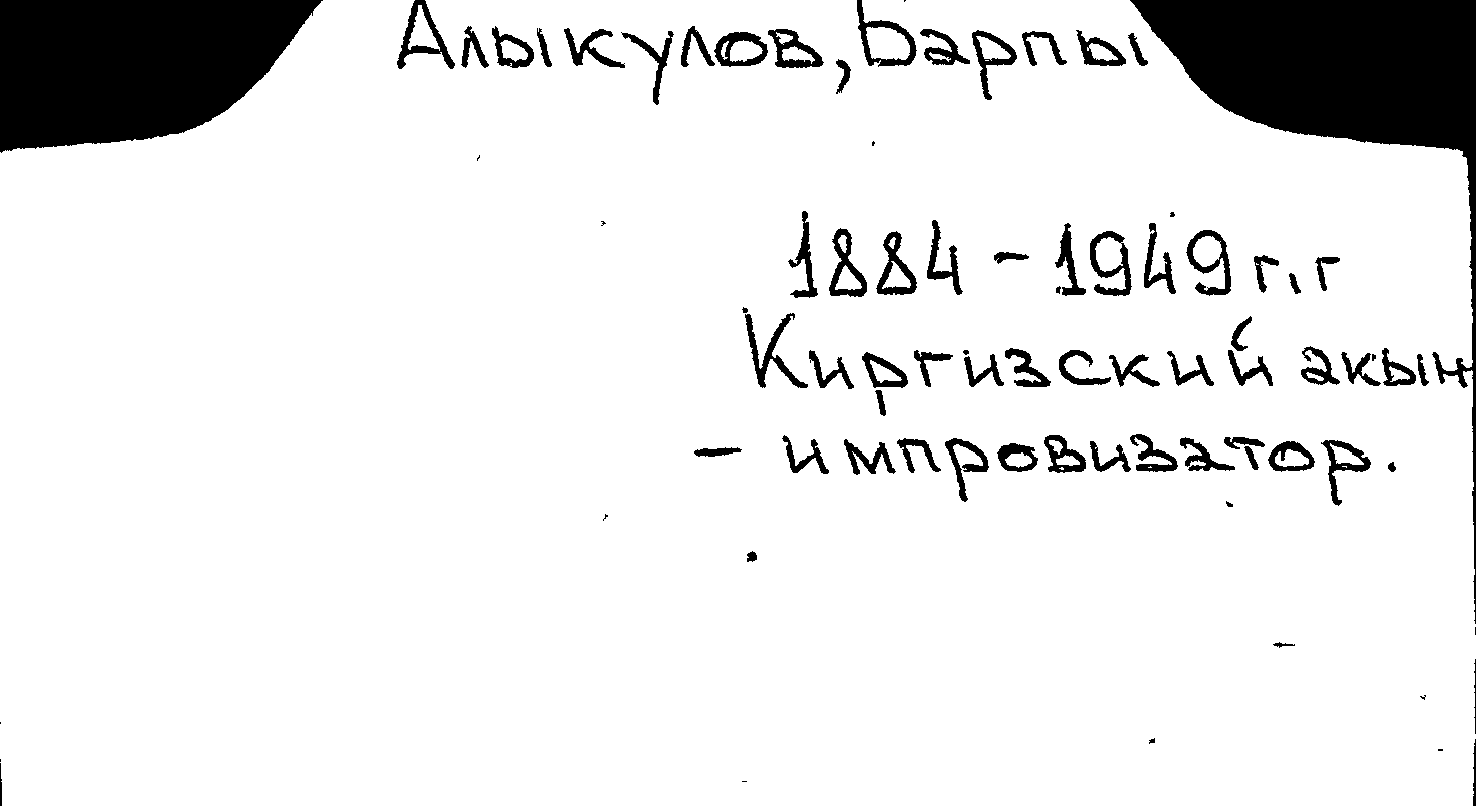 Алыкулов, Барпы
1884 - 1949 г.г
Киргизский акын
- импровизатор.